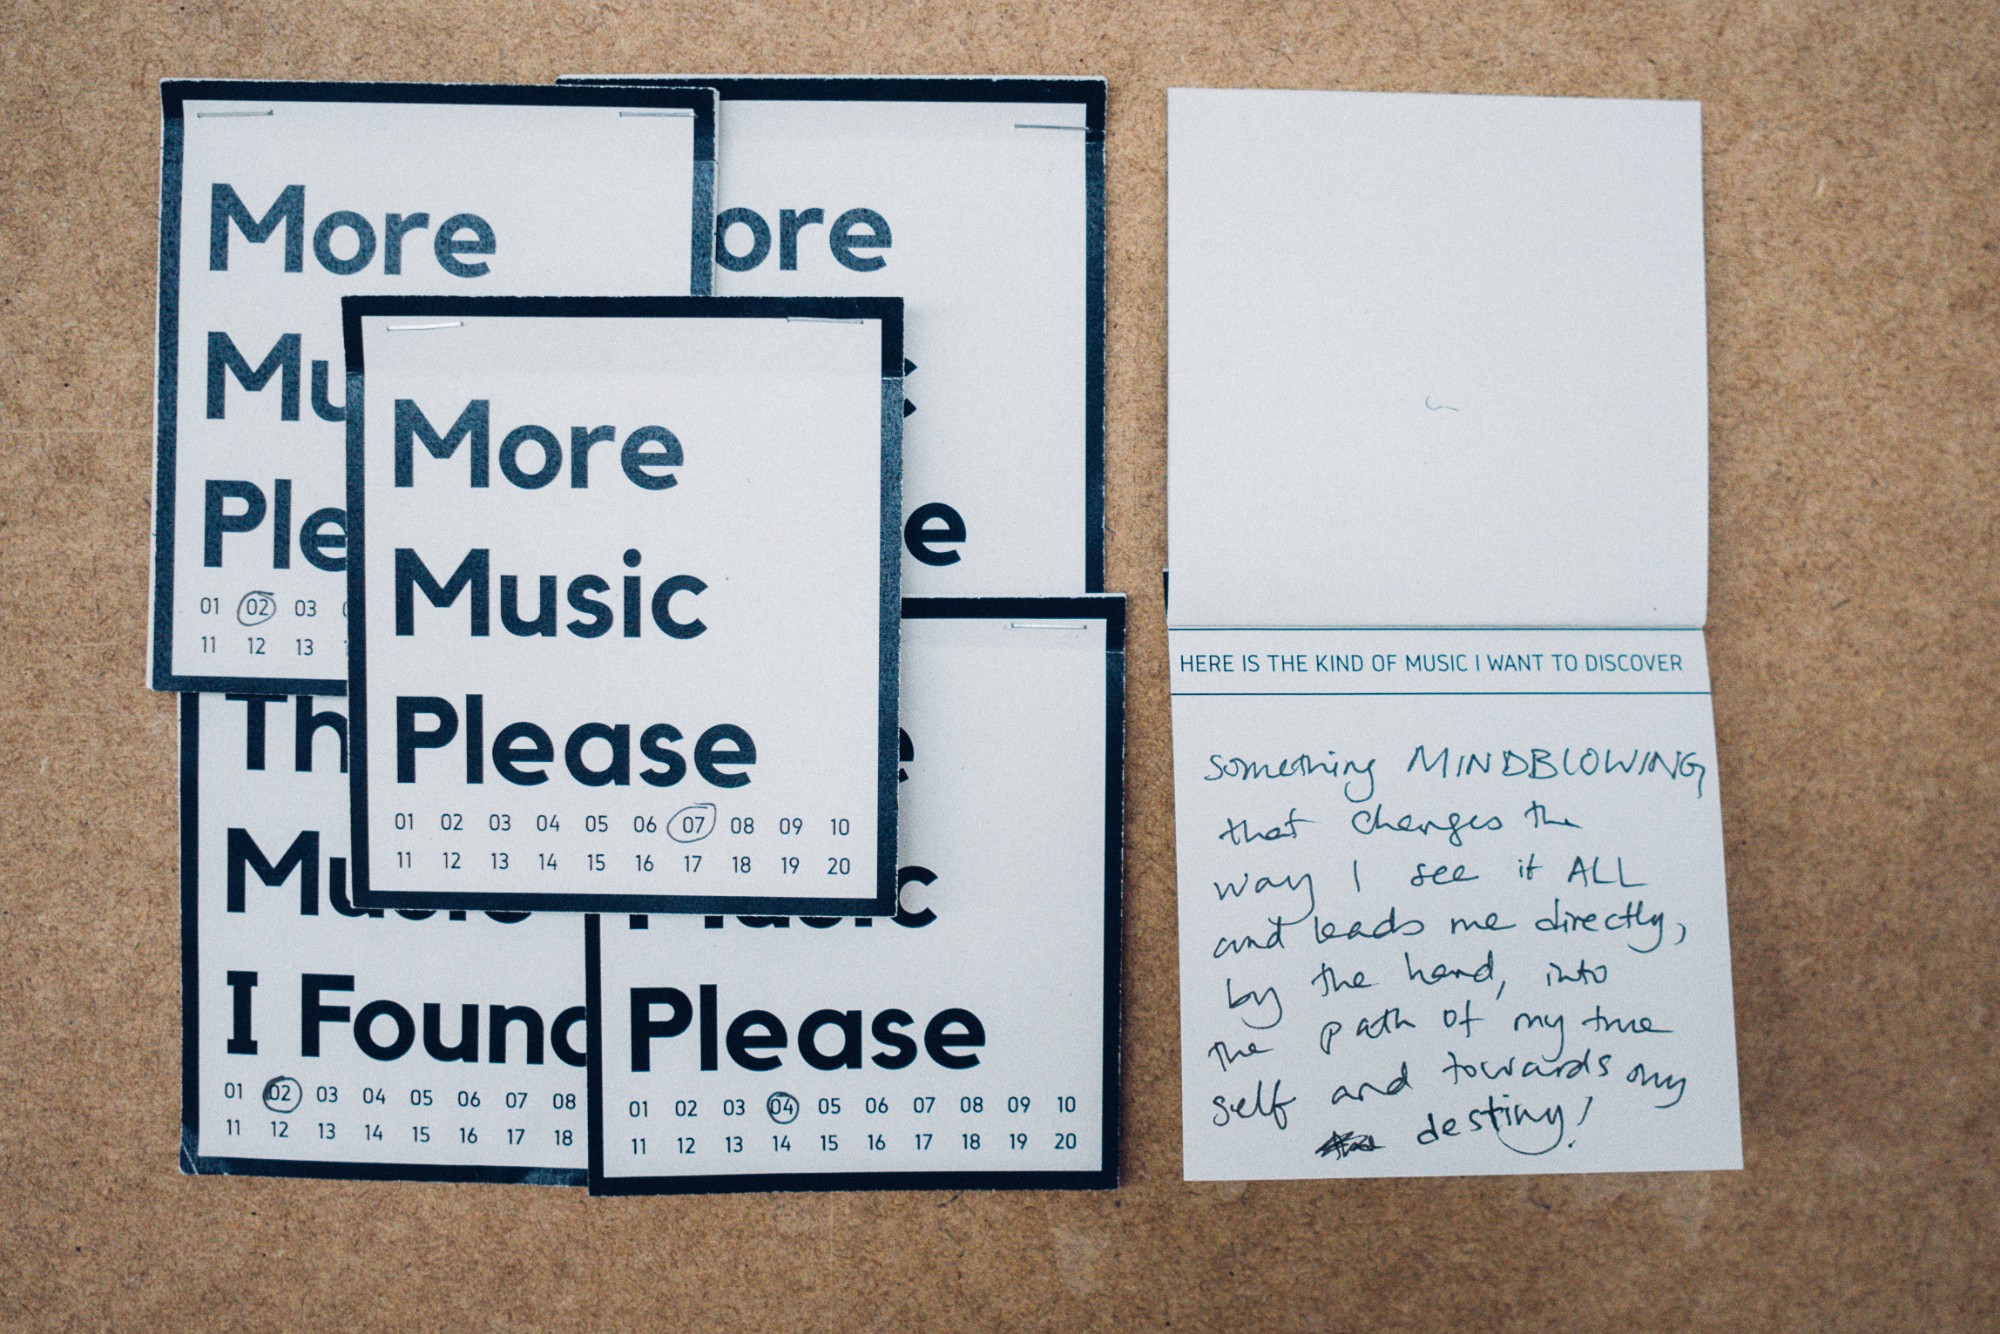 More
Mu
Ple
01 02 03
11 12 13
ore
c
e
More
Music
Please
01 02 03 04 05 06 07 08 09 10
11 12 13 14 15 16 17 18 19 20
Th
Music
I Found
01 02 03 04 05 06 07 08
11 12 13 14 15 16 17 18
e
Music
Please
01 02 03 04 05 06 07 08 09 10
11 12 13 14 15 16 17 18 19 20
HERE IS THE KIND OF MUSIC I WANT TO DISCOVER
something MINDBLOWING
that changes the
way I see it ALL
and leads me directly,
by the hand, into
the path of my true
self and towards my
destiny!